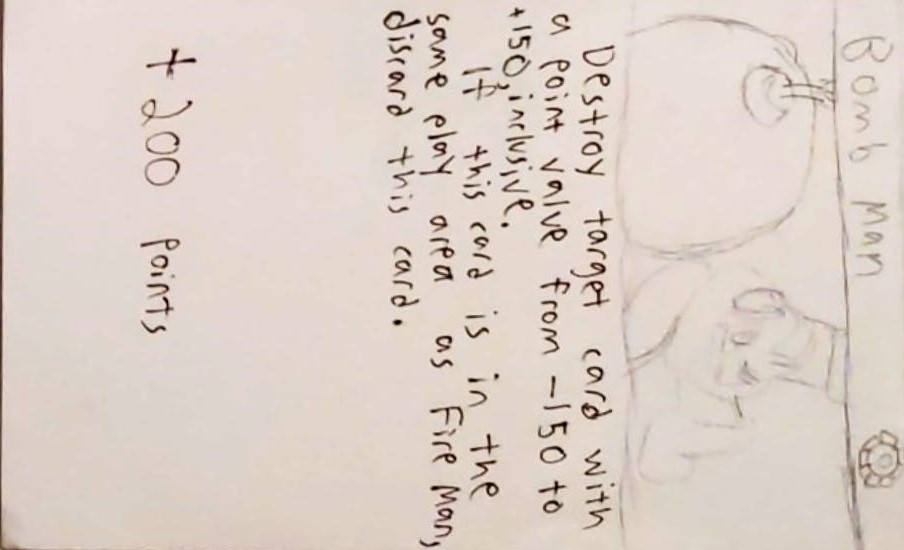 Bomb Man
Destroy target card with
a point value from -150 to
+150, inclusive.
If this card is in the
same play area as Fire Man,
discard this card.
+200 points